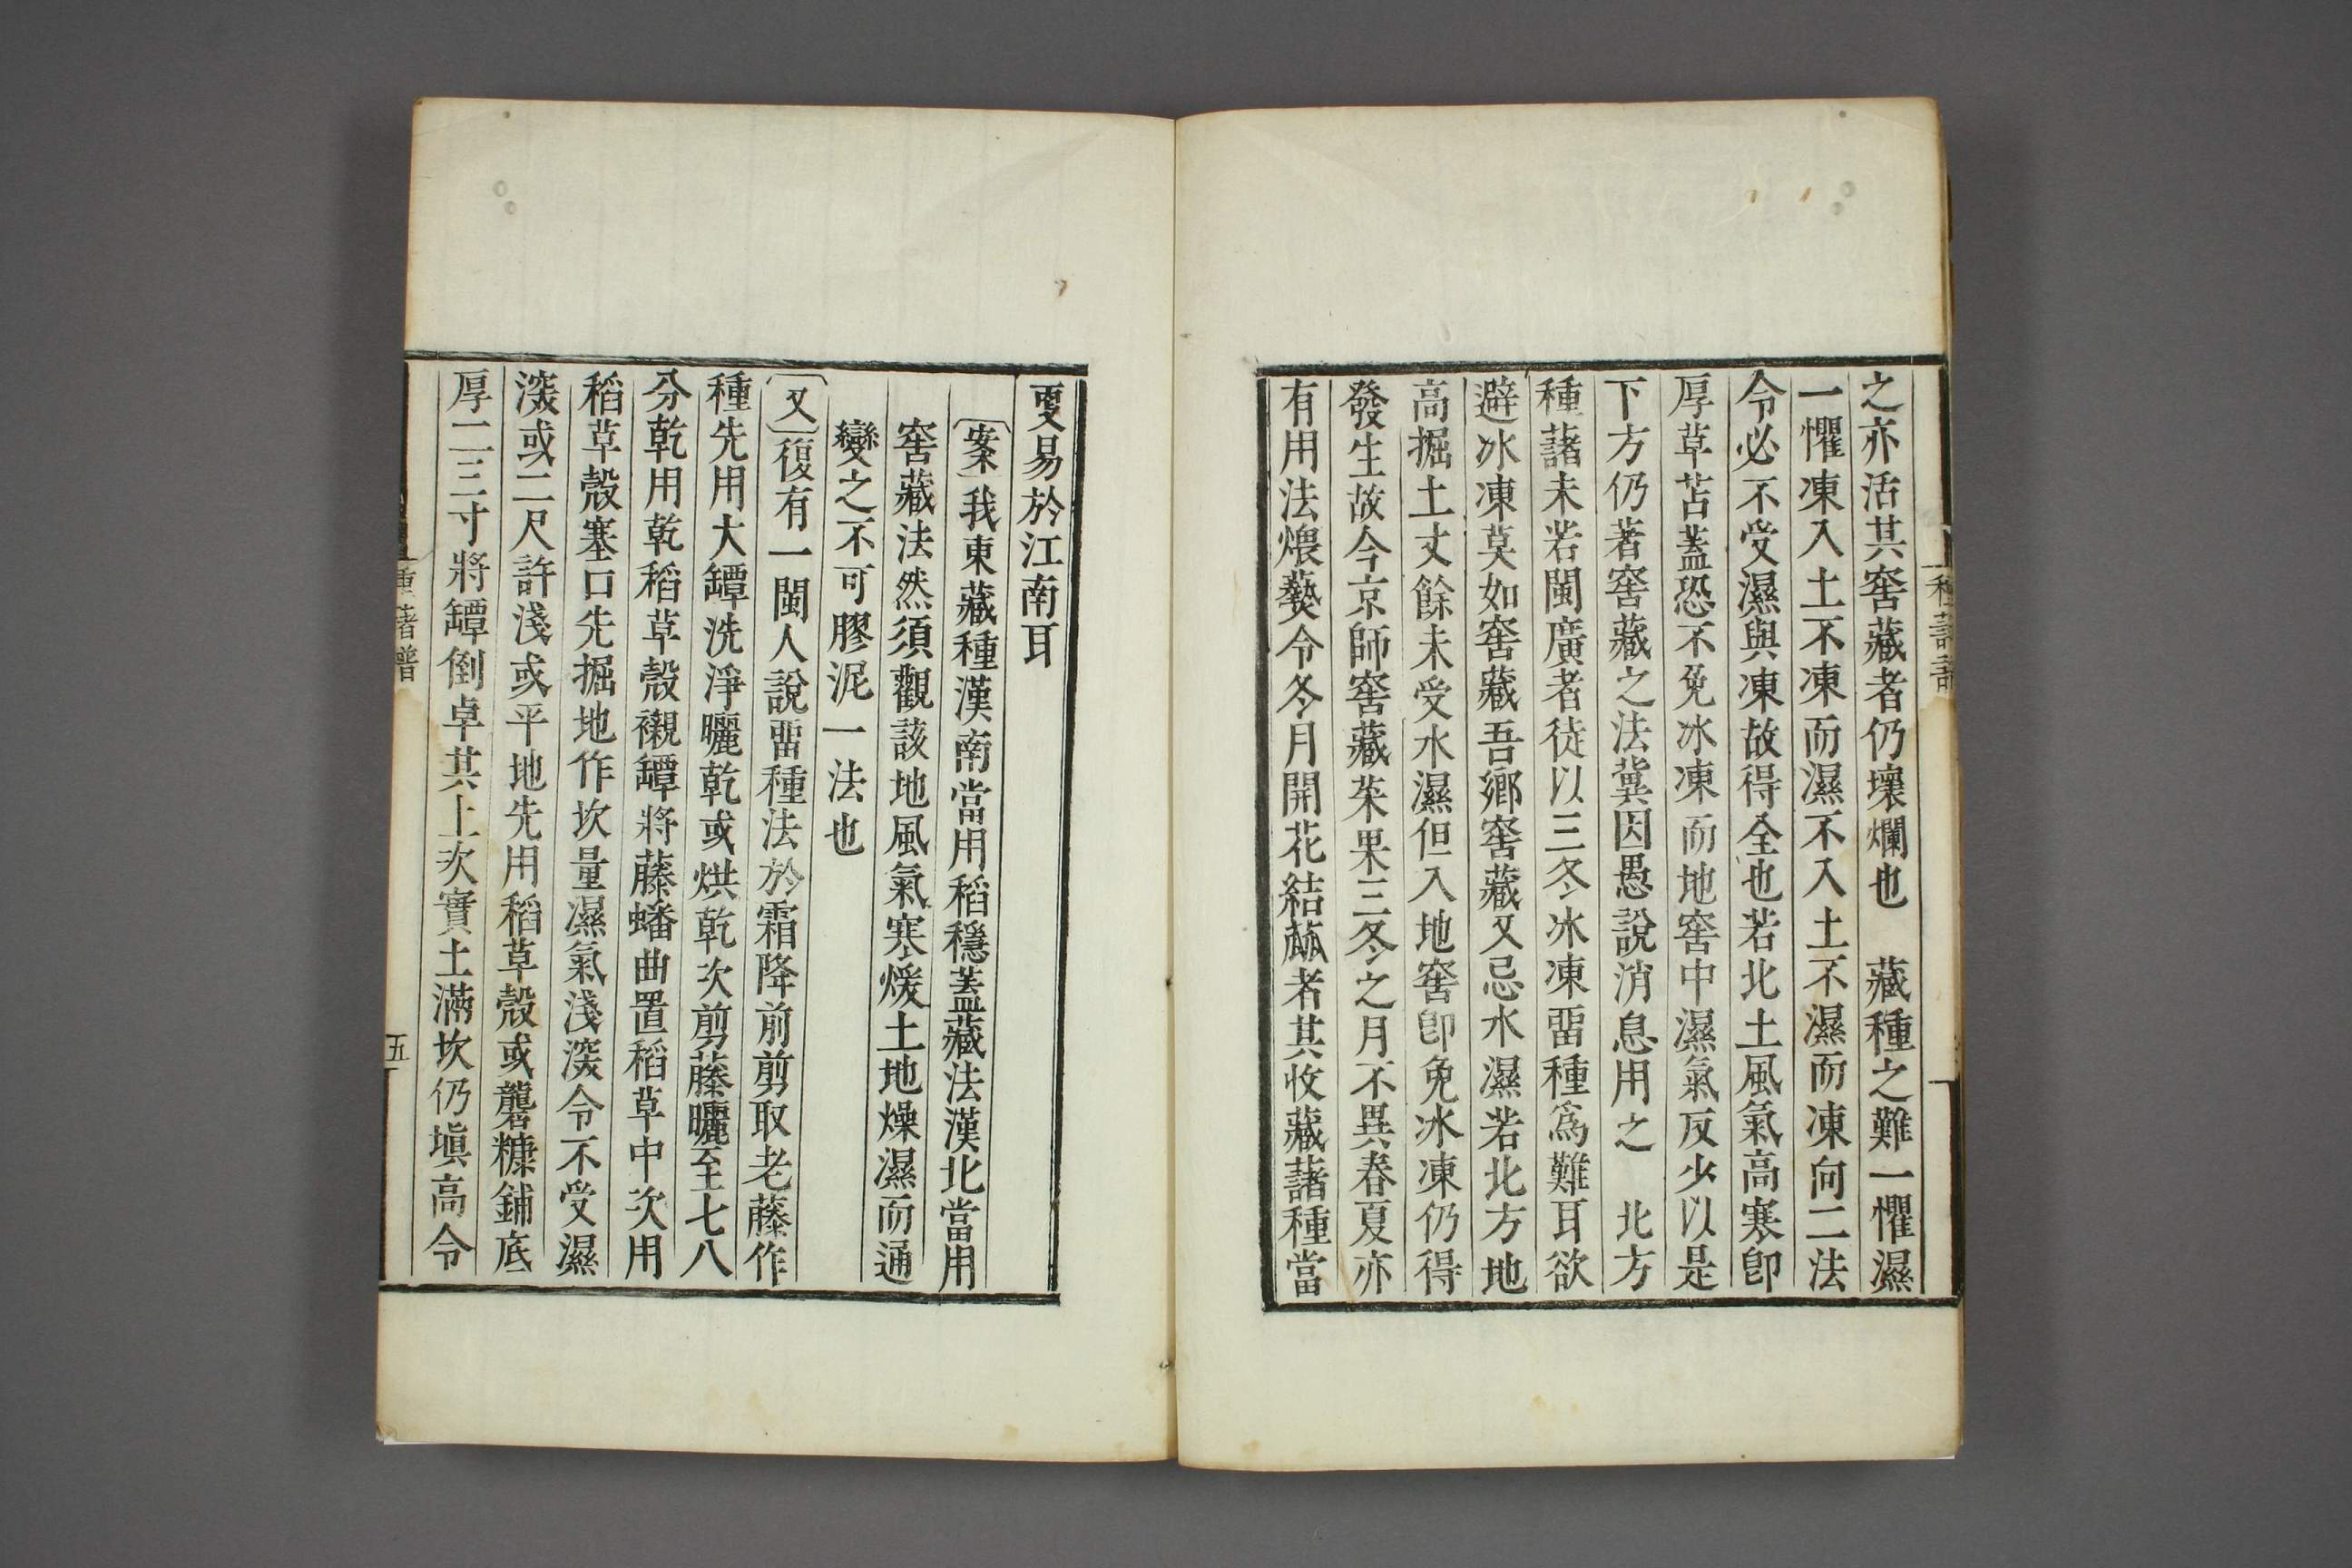 之亦活其窖藏者仍壞爛也　藏種之難一懼濕
一懼凍入土不凍而濕不入土不濕而凍向二法
令必不受濕與凍故得全也若北土風氣高寒卽
厚草苫蓋恐不免冰凍而地窖中濕氣反少以是
下方仍著窖藏之法冀因愚說消息用之　北方
種藷未若閩廣者徒以三冬冰凍畱種爲難耳欲
避冰凍莫如窖藏吾鄉窖藏又忌水濕若北方地
高掘土丈餘未受水濕但入地窖卽免冰凍仍得
發生故今京師窖藏菜果三冬之月不異春夏亦
有用法煨爇令冬月開花結蓏者其收藏藷種當
更易於江南耳
〔案〕我東藏種漢南當用稻穩蓋藏法漢北當用
窖藏法然須觀該地風氣寒煖土地燥濕而通
變之不可膠泥一法也
〔又〕復有一閩人說畱種法於霜降前剪取老藤作
種先用大罈洗淨曬乾或烘乾次剪藤曬至七八
分乾用乾稻草殼襯罈將藤蟠曲置稻草中次用
稻草殼塞口先掘地作坎量濕氣淺深令不受濕
深或二尺許淺或平地先用稻草殼或礱糠鋪底
厚二三寸將罈倒卓其上次實土滿坎仍塡高令
種藷譜
五